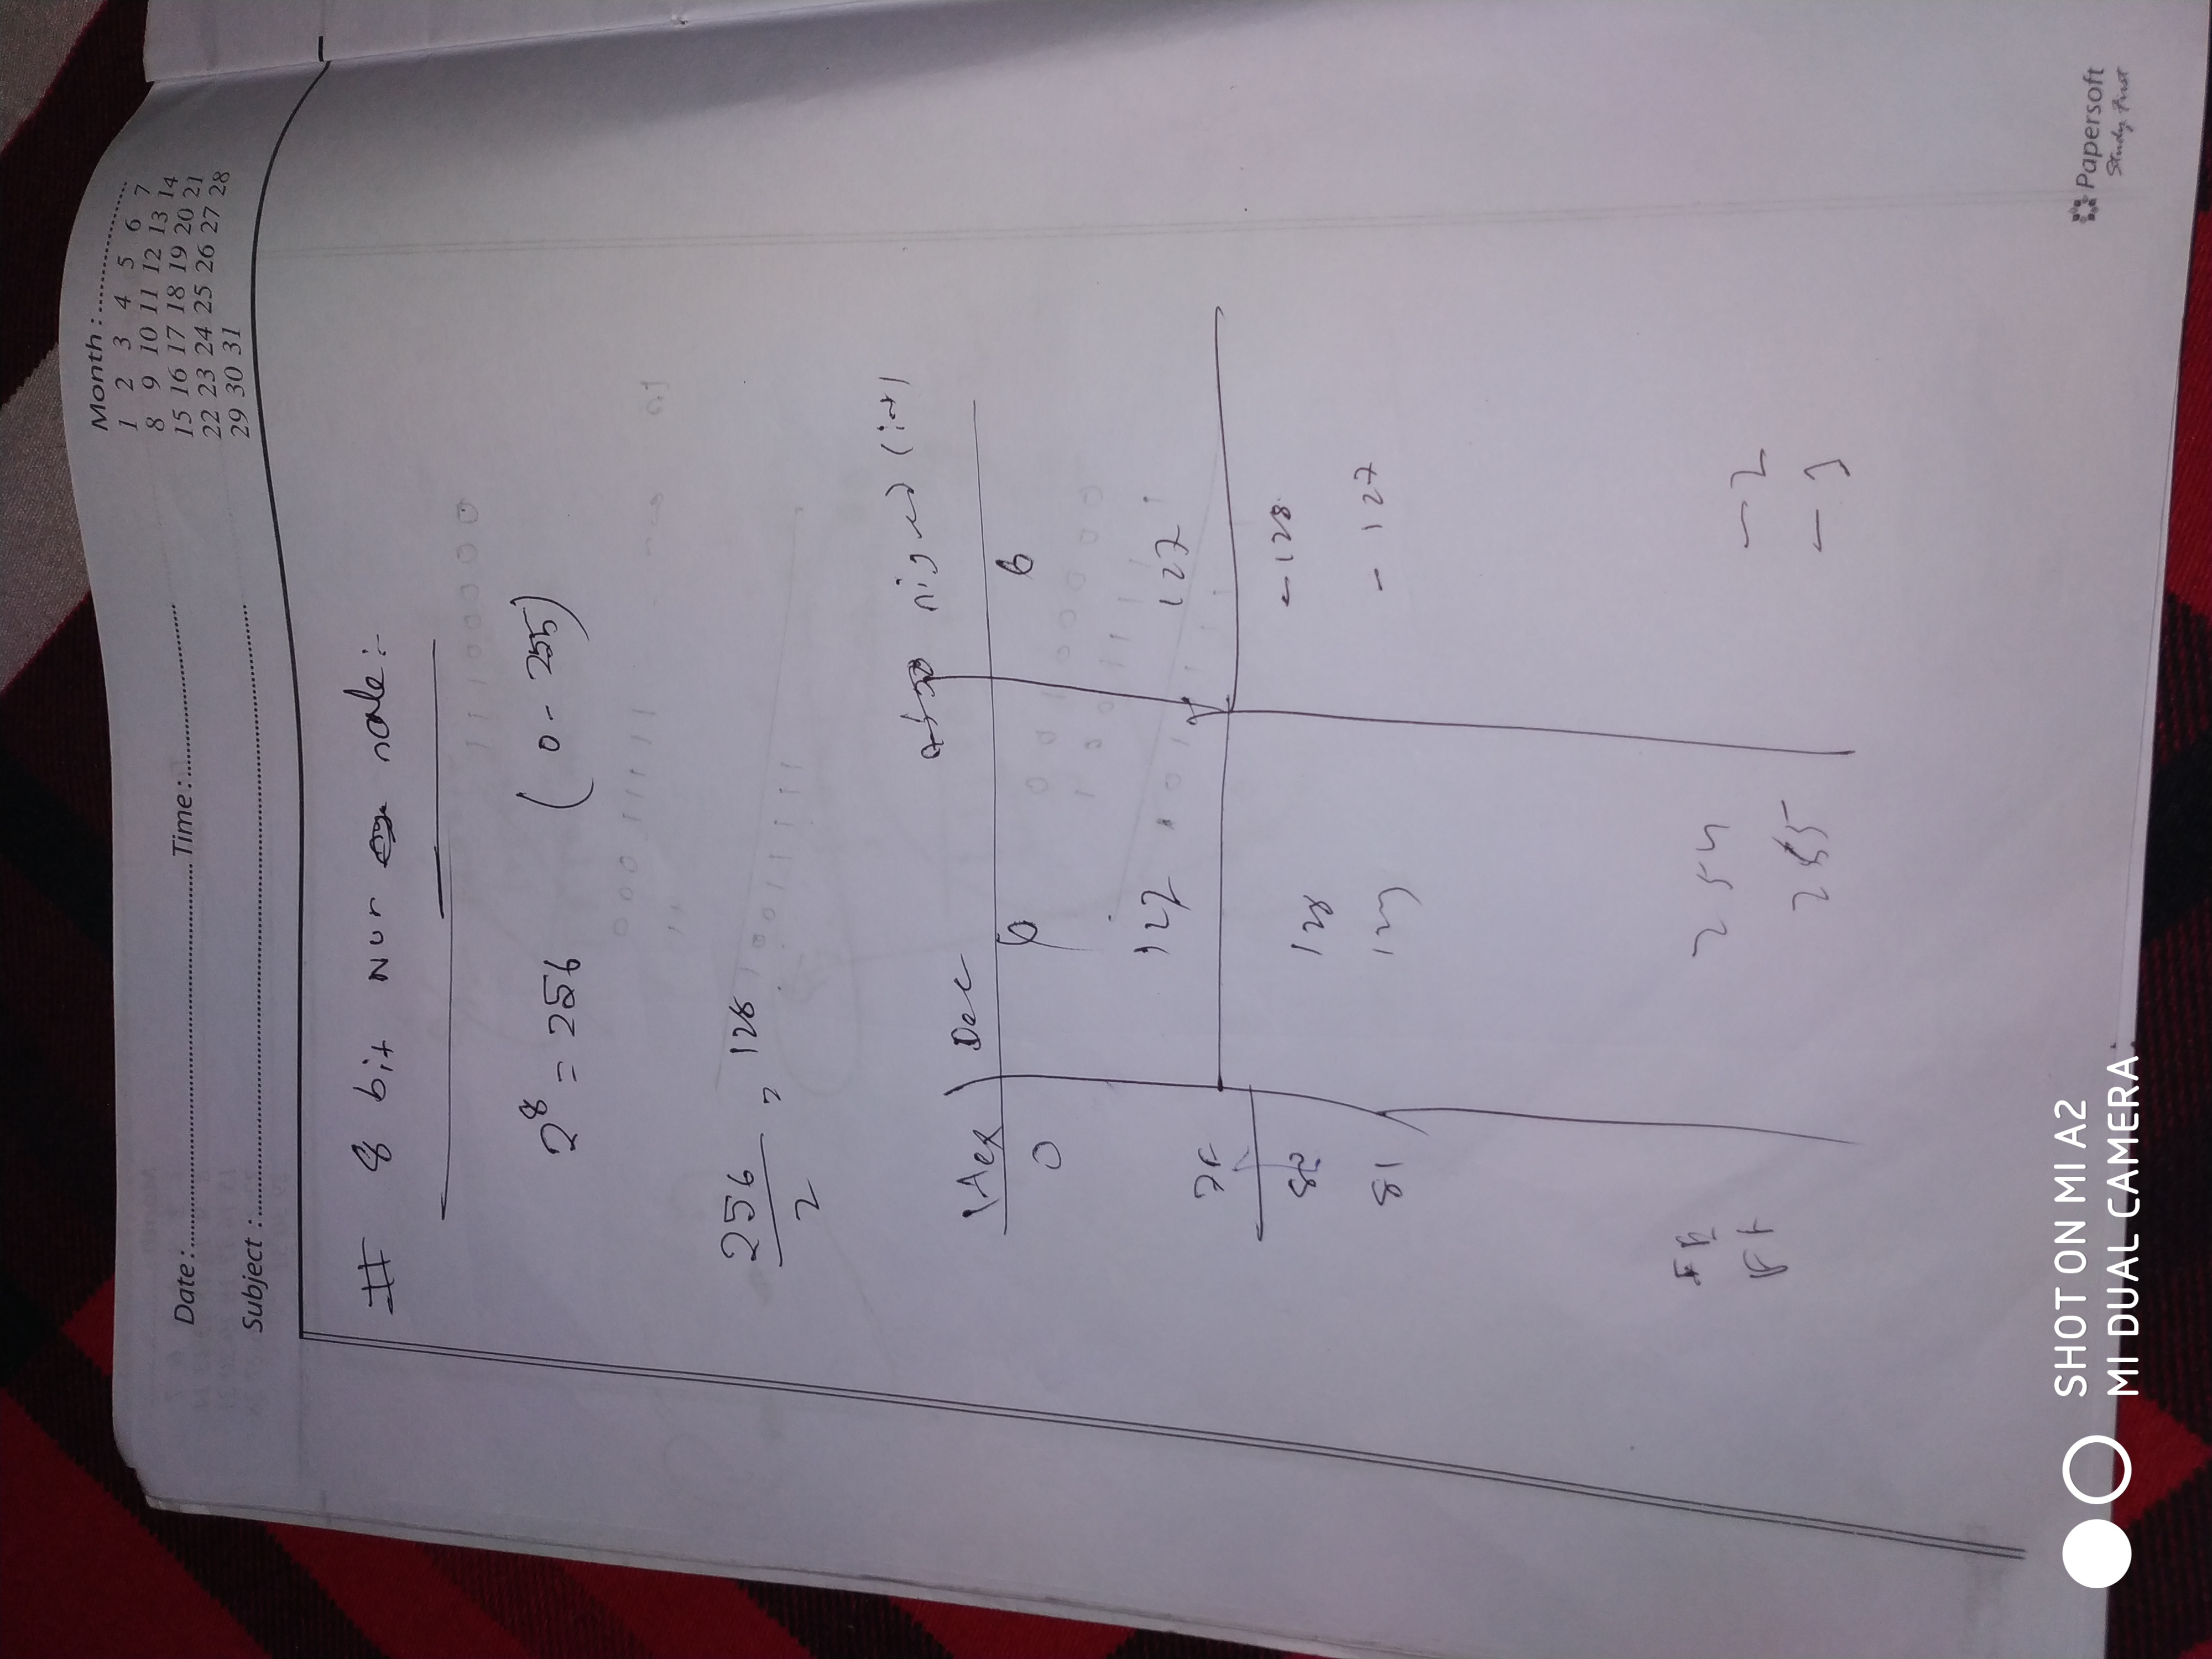 Month :
1 2 3 4 5 6 7
8 9 10 11 12 13 14
15 16 17 18 19 20 21
22 23 24 25 26 27 28
29 30 31
Date : Time :
Subject :
# 8 bit Nur nale :-
2^8 = 256 (0 - 255)
256/2 = 128
Hex Dec nigned (int)
0 0 0
7F 127 127
80 128 - 128
81 129 - 127
FE 254 - 2
FF 255 - 1
SHOT ON MI A2
MI DUAL CAMERA
Papersoft
Study First